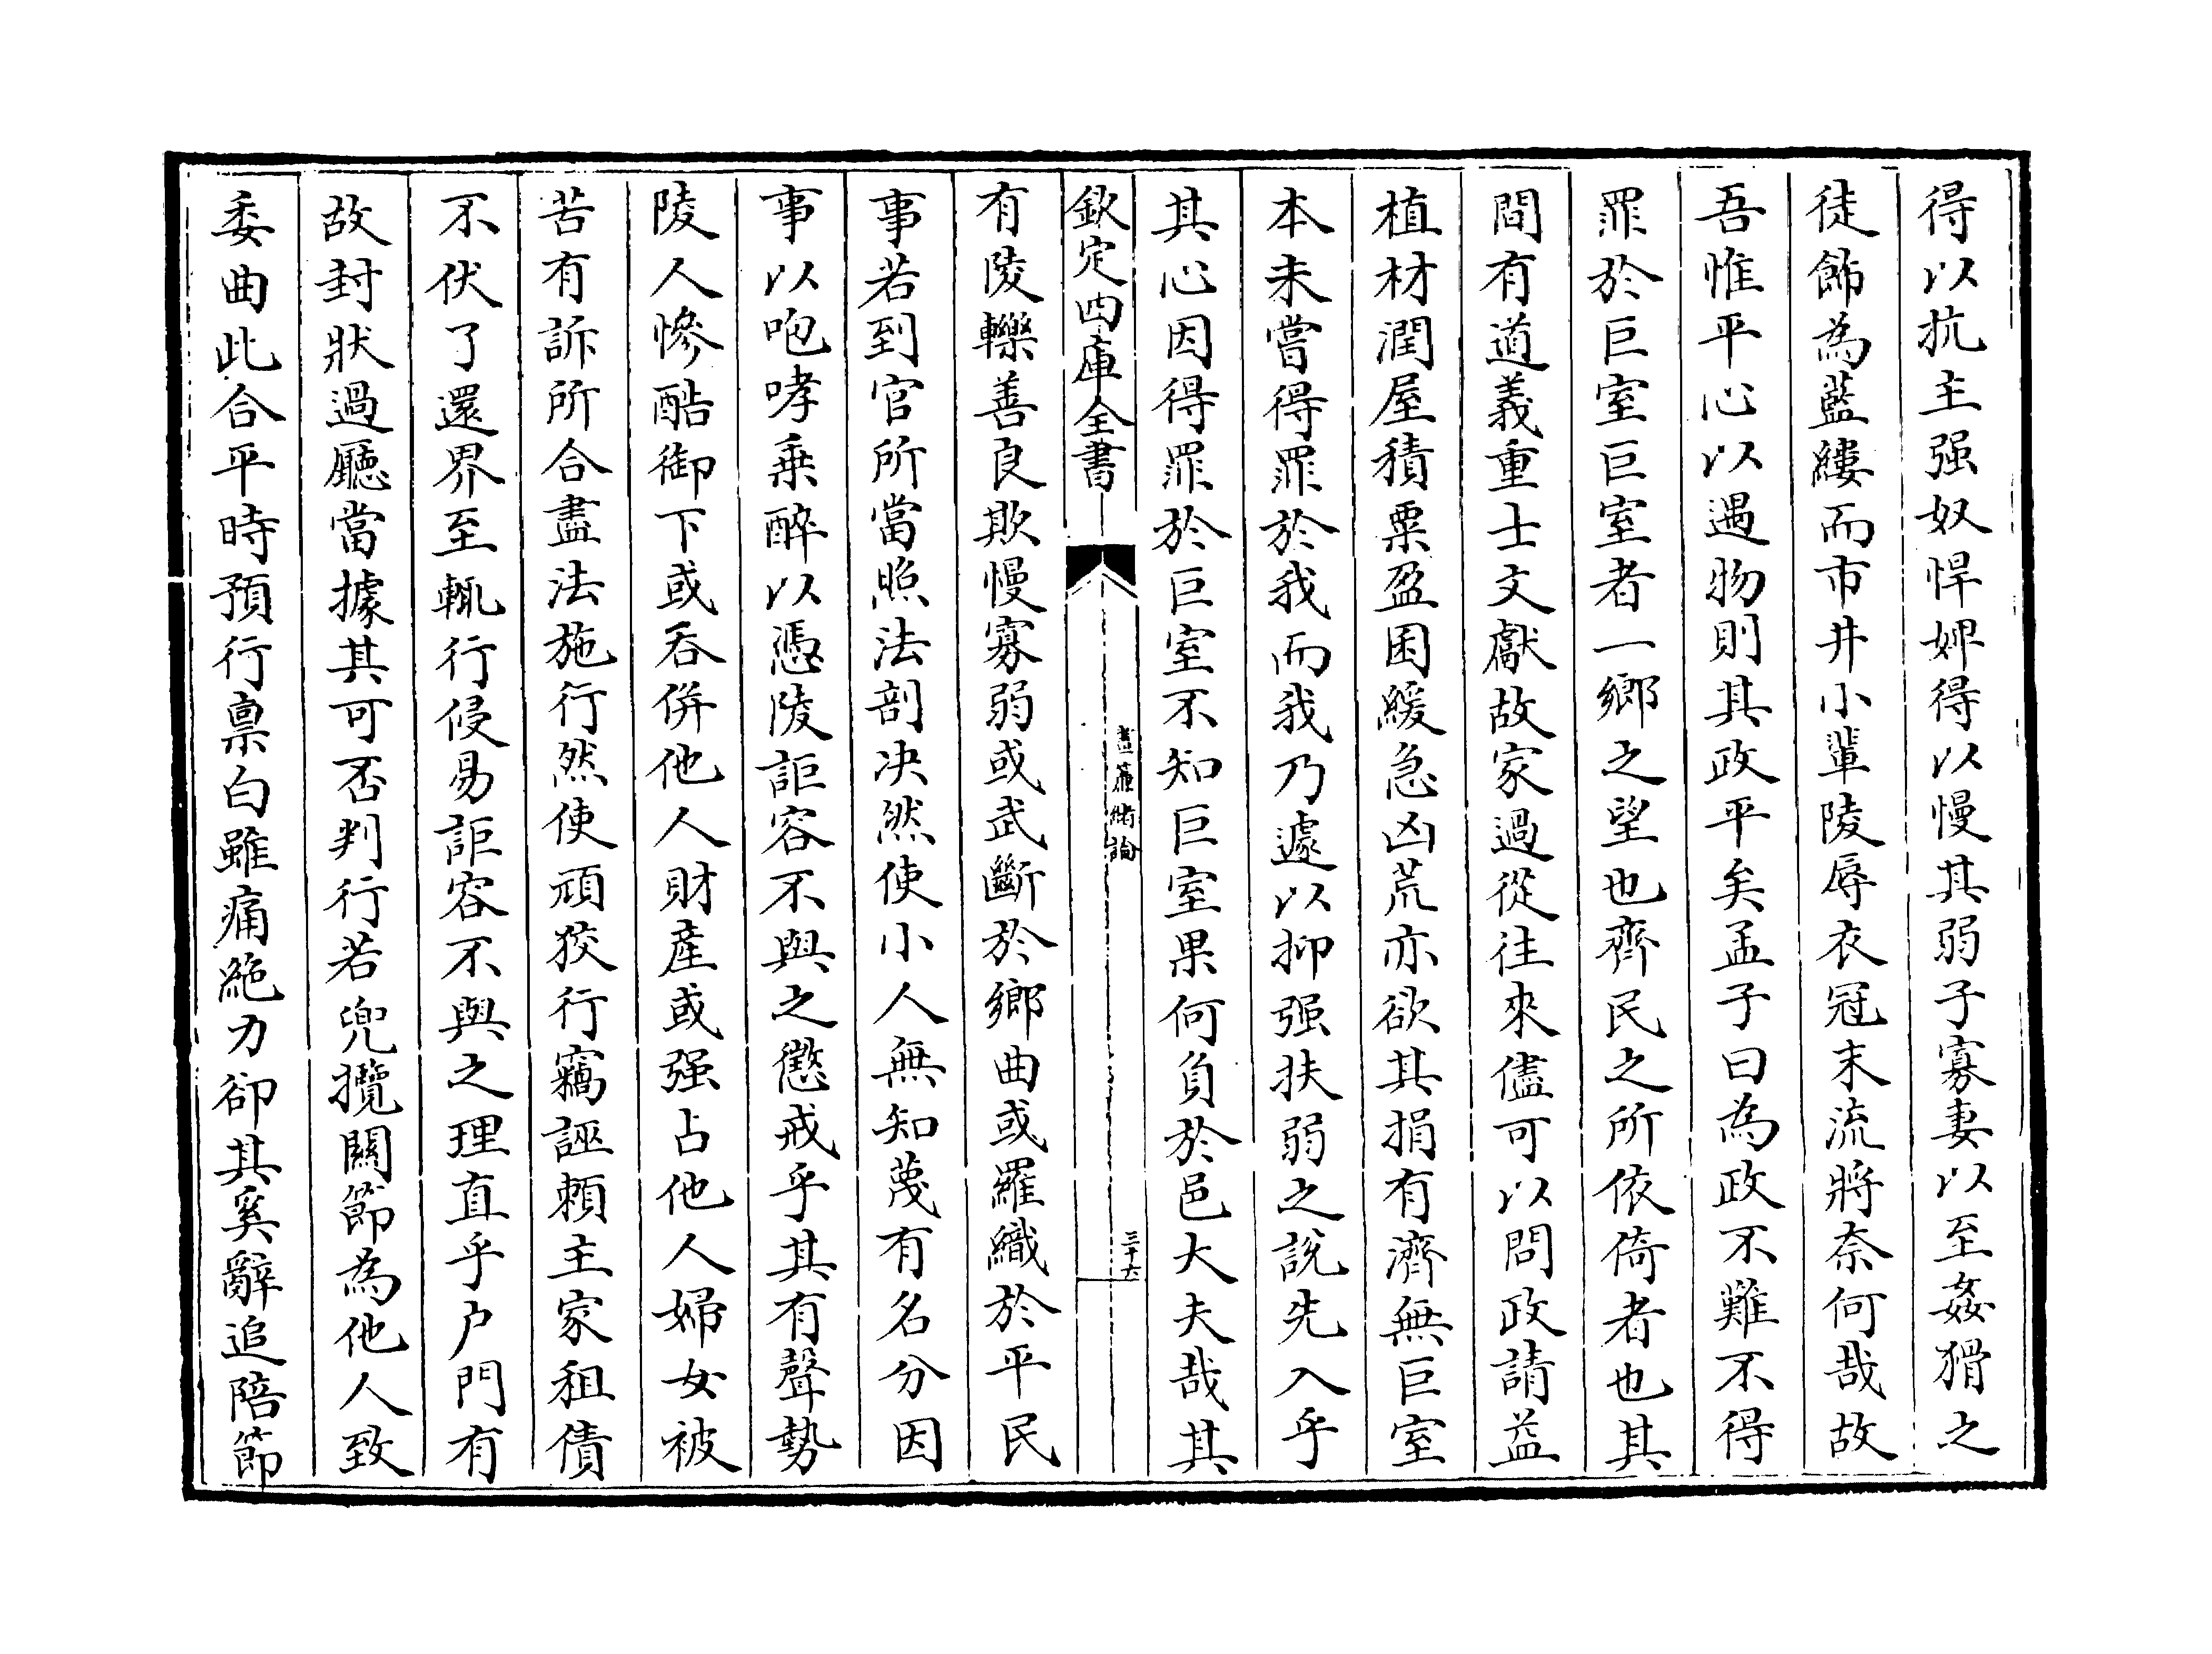 得以抗主强奴悍婢得以慢其弱子寡妻以至姦猾之
徒飾為藍縷而市井小輩陵辱衣冠末流將奈何哉故
吾惟平心以遇物則其政平矣孟子曰為政不難不得
罪於巨室巨室者一鄉之望也齊民之所依倚者也其
間有道義重士文獻故家過從往來儘可以問政請益
植材潤屋積粟盈囷緩急凶荒亦欲其捐有濟無巨室
本未嘗得罪於我而我乃遽以抑强扶弱之說先入乎
其心因得罪於巨室不知巨室果何負於邑大夫哉其
欽定四庫全書
晝簾緒論
三十六
有陵轢善良欺慢寡弱或武斷於鄉曲或羅織於平民
事若到官所當照法剖决然使小人無知蔑有名分因
事以咆哮乗醉以憑陵詎容不與之懲戒乎其有聲勢
陵人慘酷御下或吞併他人財產或强占他人婦女被
苦有訴所合盡法施行然使頑狡行竊誣賴主家租債
不伏了還界至輒行侵易詎容不與之理直乎户門有
故封狀過廳當據其可否判行若兜攬關節為他人致
委曲此合平時預行禀白雖痛絶力卻其奚辭追陪節